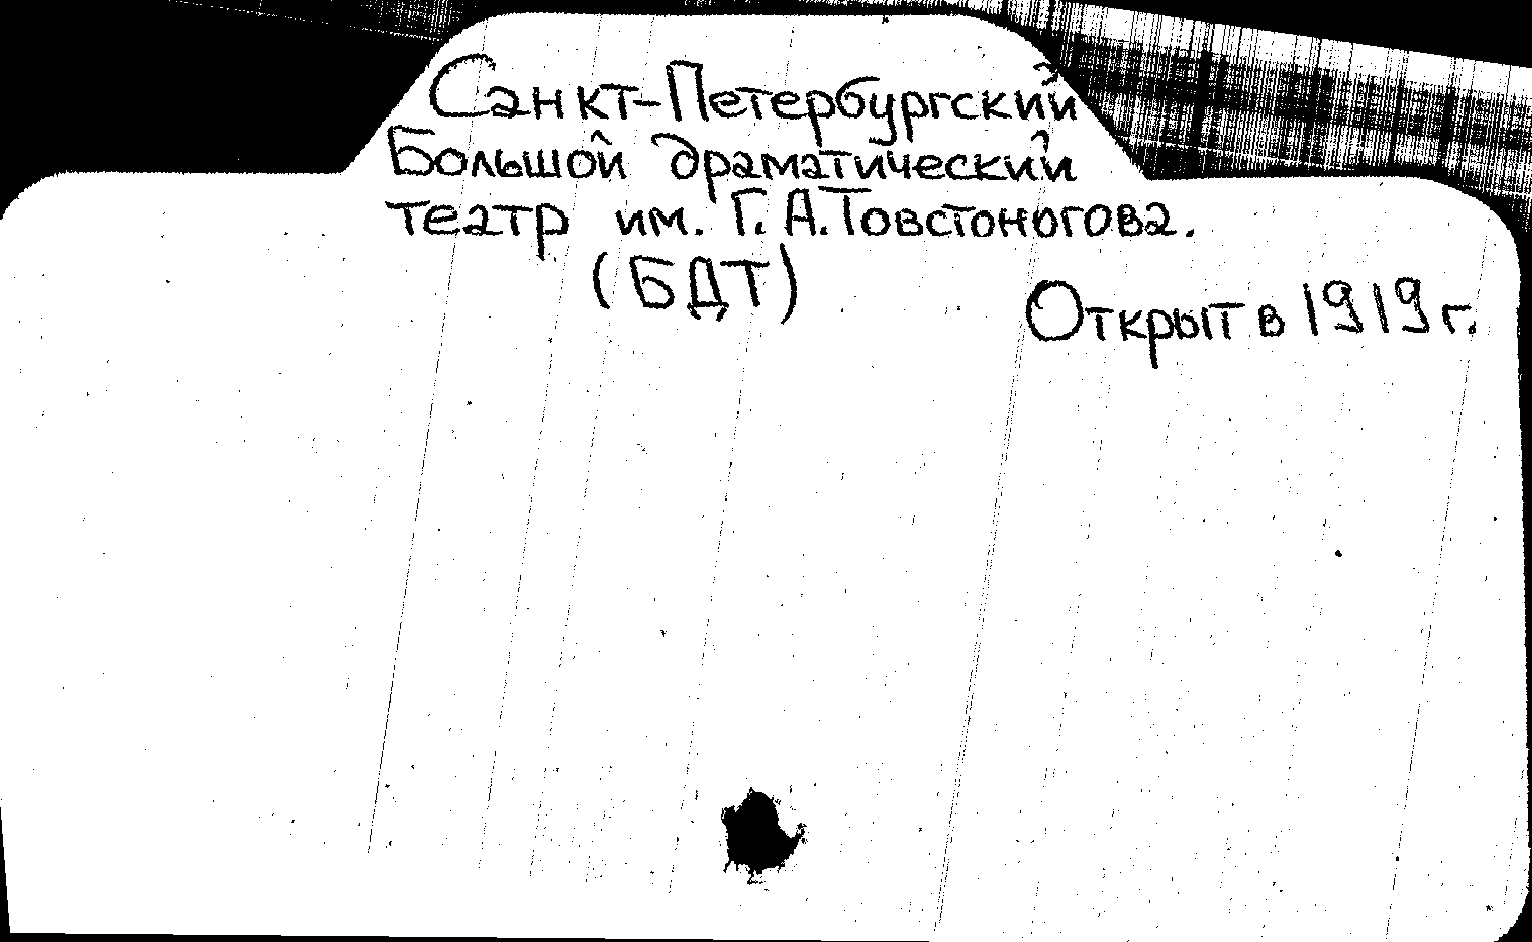 Санкт-Петербургский
Большой драматический
театр им. Г. А. Товстоногова.
(БДТ)
Открыт в 1919 г.